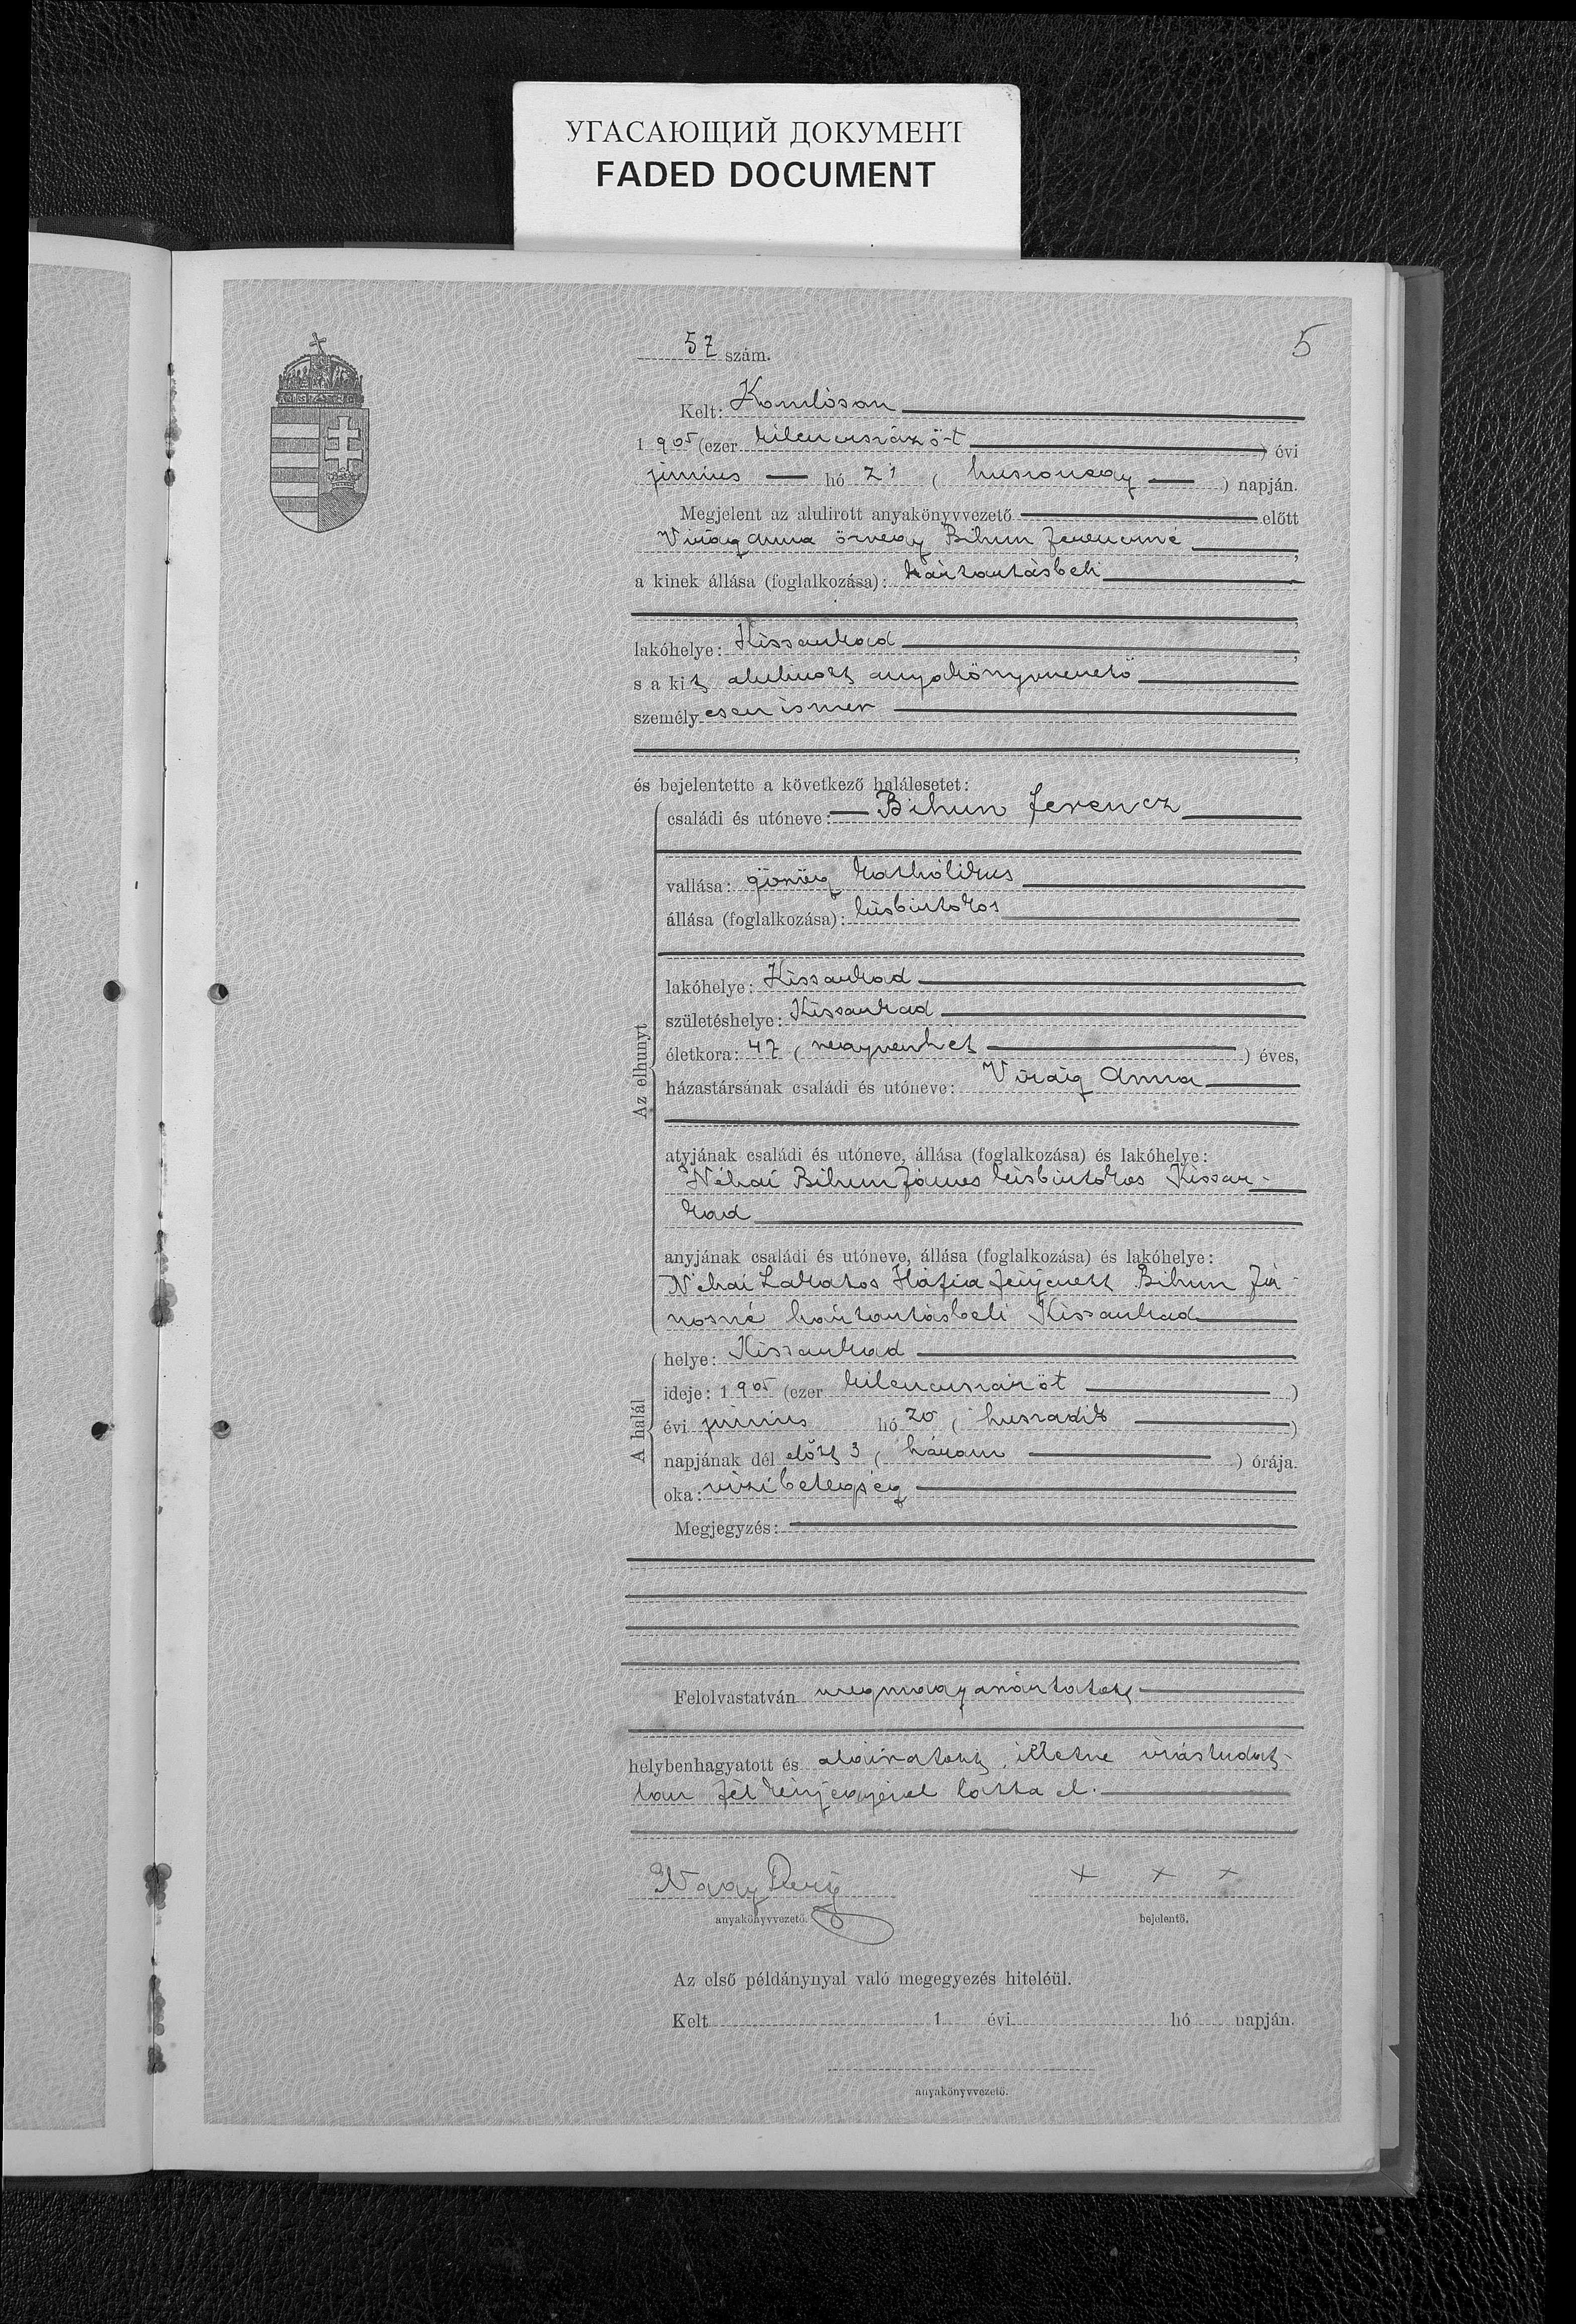 УГАСАЮЩИЙ ДОКУМЕНТ
FADED DOCUMENT
5
57 szám.
Kelt: Komlóson
1905 (ezer kilenczszáz öt) évi
június hó 21 (huszonegy) napján.
Megjelent az alulirott anyakönyvvezető előtt
Virág Anna özvegy Bihun Ferenczné,
a kinek állása (foglalkozása): háztartásbeli
lakóhelye: Kissarkad,
s a kit alulirott anyakönyvvezető
személyesen ismer
és bejelentette a következő halálesetet:
Az elhunyt
családi és utóneve: Bihun Ferencz
vallása: görög katholikus
állása (foglalkozása): kisbirtokos
lakóhelye: Kissarkad
születéshelye: Kissarkad
életkora: 47 (negyvenhét) éves,
házastársának családi és utóneve: Virág Anna
atyjának családi és utóneve, állása (foglalkozása) és lakóhelye:
Néhai Bihun János kisbirtokos Kissar-
kad
anyjának családi és utóneve, állása (foglalkozása) és lakóhelye:
Néhai Lakatos férjezett Bihun Já-
nosné háztartásbeli Kissarkad
A halál
helye: Kissarkad
ideje: 1905 (ezer kilenczszáz öt)
évi június hó 20 (huszadik)
napjának dél előtt 3 (három) órája.
oka: vizibetegség
Megjegyzés:
Felolvastatván megmagyaráztatott
helybenhagyatott és aláiratott, illetve irástudat-
lan fél kézjegyével látta el.
Nagy
+ + +
anyakönyvvezető.
bejelentő.
Az első példánynyal való megegyezés hiteléül.
Kelt 1 évi hó napján.
anyakönyvvezető.